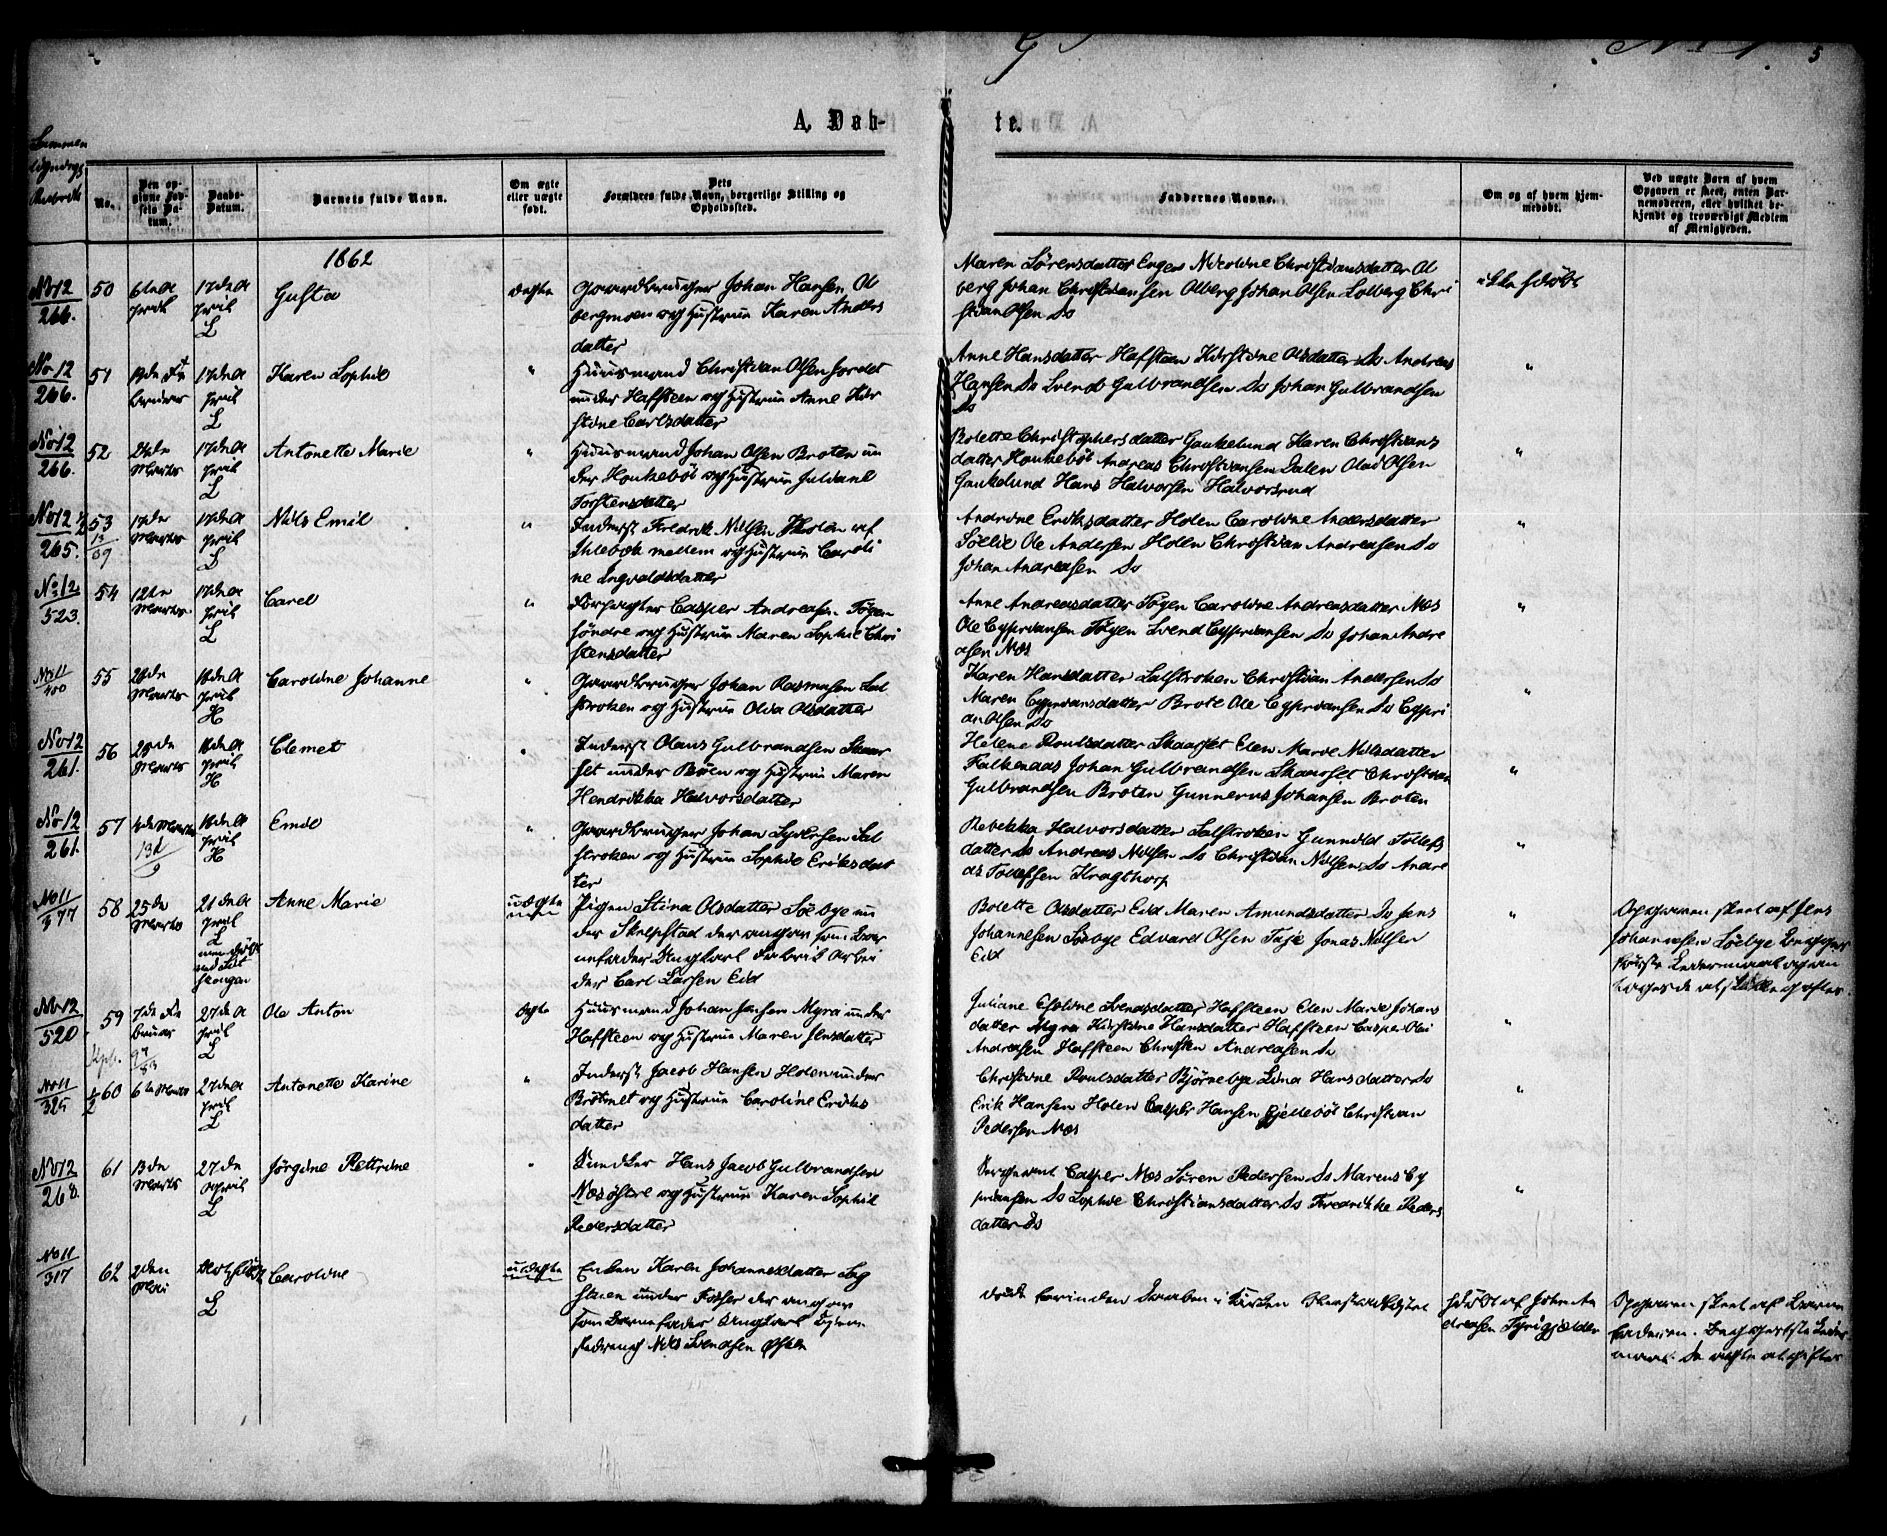 5
A. Døb-
te.
No.
Den opgivne Fødsels Datum.
Daabs-Datum.
Barnets fulde Navn.
Om ægte eller uægte født.
Dets Forældres fulde Navn, borgerlige Stilling og Opholdssted.
Faddernes Navne.
Om og af hvem hjemmedøbt.
Ved uægte Børn af hvem Opgaven er skeet, enten Barnemoderen, eller hvilket bekjendt og troværdigt Medlem af Menigheden.
1862
No 12
266.
50
6te A
pril
17de A
pril
L
Gusta
ægte
Gaardbruger Johan Hansen Ol
bergmoen og Hustrue Karen Anders
datter
Maren Sörensdatter Enger Nicoline Christiansdatter Ol
berg Johan Christiansen Olberg Johan Olsen Solberg Chri
stian Olsen Do
ikke hjdöbt
No 12
266.
51
17de A
pril
L
Karen Sophie
"
Huusmand Christian Olsen
under Haffsteen og Hustrue Anne Kir
stine Carlsdatter
Anne Hansdatter Hafsteen Kirstine Olsdatter Do Andreas
Hansen Do Svend Gulbrandsen Do Johan Gulbrandsen
Do
"
No 12
266.
52
24de
Marts
17de A
pril
L
Antonette Marie
"
Huusmand Johan Olsen Broten un
der Honkeböl og Hustrue Juliane
Torstensdatter
Bolette Christophersdatter Gaukelund Karen Christians
datter Honkeböl Andreas Christiansen Dalen Olad Olsen
Gaukelund Hans Halvorsen Halvorsrud
"
No 12
265.
53
17de
Marts
17de A
pril
L
Nils Emil
"
Inderst Fredrik Nilsen Holen af
Ihlebæk mellem og Hustrue Caroli
ne Ingvaldsdatter
Andrine Eriksdatter Holen Caroline Andersdatter
Sollie Ole Andersen Holen Christian Andreasen Do
Johan Andreasen Do
"
No 12
523.
54
12te
Marts
17de A
pril
L
Carl
"
Forpagter Casper Andreasen Foyen
söndre og Hustrue Maren Sophie Chri
stensdatter
Anne Andreasdatter Foyen Caroline Andreasdatter Næs
Ole Cypriansen Foyen Svend Cypriansen Do Johan Andre
asen Næs
"
No 11
400
55
28de
Marts
18de A
pril
H
Caroline Johanne
"
Gaardbruger Johan Rasmusen Sal
stroken og Hustrue Olia Olsdatter
Karen Hansdatter Salstroken Christian Andersen Do
Maren Cypriansdatter Brote Ole Cypriansen Do Cypri
an Olsen Do
"
No 12
261.
56
Marts
18de A
pril
H
Clemet
"
Inderst Olaus Gulbrandsen Skaar
set under Böen og Hustrue Maren
Hendrikka Halvorsdatter
Helene Poulsdatter Skaarset Elen Marie Nilsdatter
Falkenaas Johan Gulbrandsen Skaarset Christian
Gulbrandsen Broten Gunnerus Johansen Broten
"
No 12
261.
57
18de A
pril
H
Emil
"
Gaardbruger Johan Syversen Sal
stroken og Hustrue Sophie Eriksdat
ter
Rebekka Halvorsdatter Salstroken Gunnild Tollefs
datter Do Andreas Nilsen Do Christian Nilsen Do Andre
as Tollefsen Kragthorp
"
No 11
377
58
25de
Marts
21de A
pril
L
Anne Marie
uægte
Pigen Stina Olsdatter Söebye un
der Skelpstad der angav som Bar
nefader Ungkarl Fabrik Arbei
der Carl Larsen Eid
Bolette Olsdatter Eid Maren Amundsdatter Do Jens
Johannesen Söebye Edvard Olsen Taje Jonas Nilsen
Eid
"
Opgaven skeet af Jens
Johannesen Söebye Begges
förste Leiermaal og an
No 12
520
59
7de Fe
bruar
27de A
pril
L
Ole Anton
ægte
Huusmand Johan Jensen Myra under
Haffsteen og Hustrue Maren Jensdatter
Juliane Eveline Svendsdatter Haffsteen Elen Marie Johans
datter Myra Kirstine Hansdatter Haffsteen Casper Olai
Andreasen Haffsteen Christen Andreasen Do
"
No 11
325
60
6te Marts
27de A
pril
L
Antonette Karine
"
Inderst Jacob Hansen Holen under
Brötnet og Hustrue Caroline Eriks
datter
Christine Poulsdatter Björnebye Lina Hansdatter Do
Erik Hansen Holen Casper Hansen Gjelleböl Christian
Pedersen Næs
"
No 12
268.
61
13de
Marts
27de
April
L
Jörgine Pettrine
"
Snedker Hans Jacob Gulbrandsen
Næs östre og Hustrue Karen Sophie
Pedersdatter
Sergeant Casper Næs Sören Pedersen Do Marens Cy
priansen Do Sophie Christiansdatter Do Fredrikke Peders
datter Do
"
No 11
317
62
2den
Mai
L
Caroline
uægte
Enken Karen Johannesdatter Sag
stuen under Fosser der angav
som Barnefader Ungkarl
Nils Svendsen
döde forinden Daaben i Kirken
hjdöbt af Johan An
dreasen Tyrigjelder
Opgaven skeet af Barne
faderen. Begges förste Leier
maal. De agte at gifte